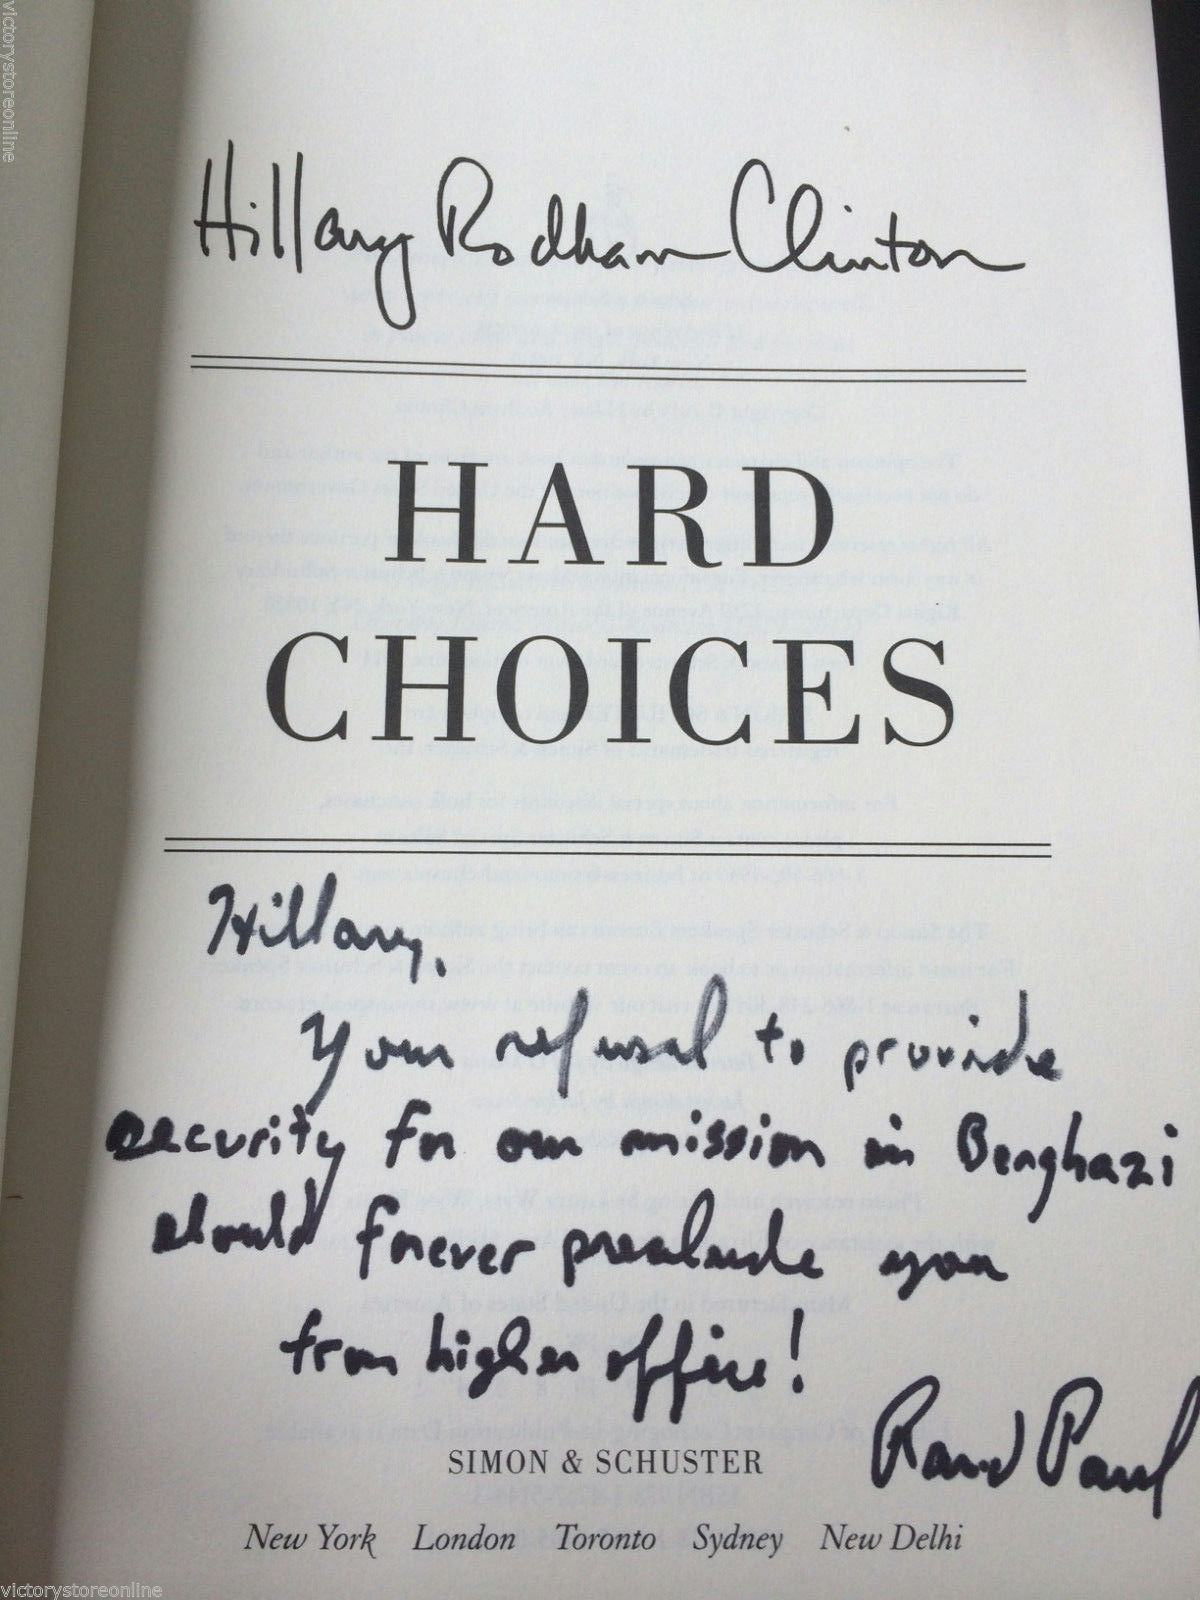 victorystoreonline
Hillary Rodham Clinton
HARD
CHOICES
Hillary,
Your refusal to provide
security for our mission in Benghazi
should forever preclude you
from higher office!
Rand Paul
SIMON & SCHUSTER
New York London Toronto Sydney New Delhi
victorystoreonline